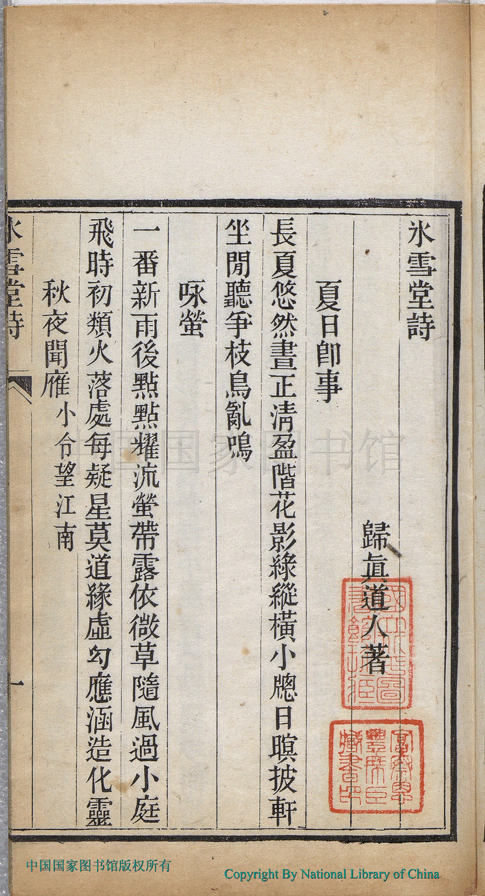 氷雪堂詩
歸眞道人著
夏日卽事
長夏悠然晝正清盈階花影綠縱橫小牕日暝披軒
坐閒聽爭枝鳥亂鳴
咏螢
一番新雨後點點耀流螢帶露依微草隨風過小庭
飛時初類火落處每疑星莫道緣虛幻應涵造化靈
秋夜聞雁小令望江南
氷雪堂詩
一
中国国家图书馆
中国国家图书馆版权所有
Copyright By National Library of China